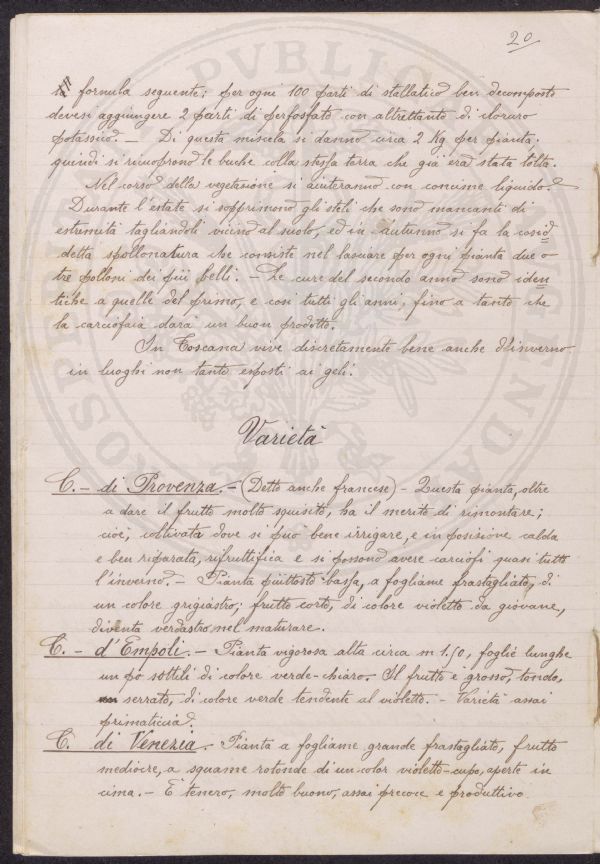 20
formula seguente; per ogni 100 parti di stallatico ben decomposto
devesi aggiungere 2 parti di perfosfato con altrettanto di cloruro
potassico. — Di questa miscela si danno circa 2 Kg per pianta,
quindi si ricoprono le buche colla stessa terra che già era stata tolta.
Nel corso della vegetazione si aiuteranno con concime liquido.
Durante l'estate si sopprimono gli steli che sono mancanti di
estremità tagliandoli vicino al suolo, ed in autunno si fa la cosid=
detta spollonatura che consiste nel lasciare per ogni pianta due o
tre polloni dei più belli. — Le cure del secondo anno sono iden=
tiche a quelle del primo, e così tutti gli anni, fino a tanto che
la carciofaia darà un buon prodotto.
In Toscana vive discretamente bene anche d'inverno
in luoghi non tanto esposti ai geli.
Varietà
C. — di Provenza. — (Detto anche francese) — Questa pianta, oltre
a dare il frutto molto squisito, ha il merito di rimontare;
cioè, coltivata dove si può bene irrigare, e in posizione calda
e ben riparata, rifruttifica e si possono avere carciofi quasi tutto
l'inverno. — Pianta piuttosto bassa, a fogliame frastagliato, di
un colore grigiastro; frutto corto, di colore violetto da giovane,
diventa verdastro nel maturare.
C. — d'Empoli. — Pianta vigorosa alta circa m 1.50, foglie lunghe
un pò sottili di colore verde-chiaro. Il frutto è grosso, tondo,
serrato, di colore verde tendente al violetto. — Varietà assai
primaticcia.
C. di Venezia. — Pianta a fogliame grande frastagliato, frutto
mediocre, a squame rotonde di un color violetto-cupo, aperte in
cima. — È tenero, molto buono, assai precoce e produttivo.